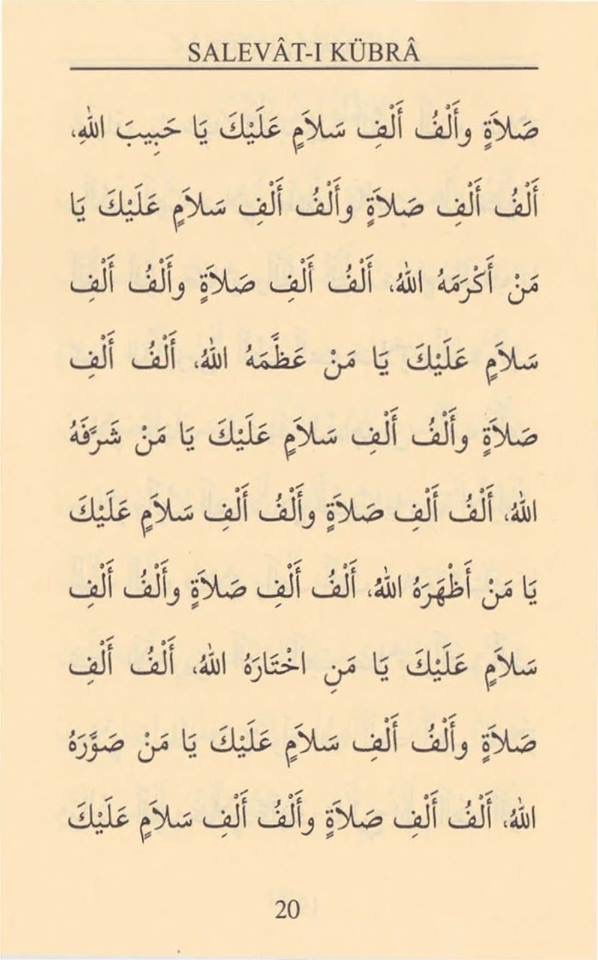 SALEVÂT-I KÜBRÂ
صَلاَةٍ وأَلْفُ أَلْفِ سَلاَمٍ عَلَيْكَ يَا حَبِيبَ اللهِ،
أَلْفُ أَلْفِ صَلاَةٍ وأَلْفُ أَلْفِ سَلاَمٍ عَلَيْكَ يَا
مَنْ أَكْرَمَهُ اللهُ، أَلْفُ أَلْفِ صَلاَةٍ وأَلْفُ أَلْفِ
سَلاَمٍ عَلَيْكَ يَا مَنْ عَظَّمَهُ اللهُ، أَلْفُ أَلْفِ
صَلاَةٍ وأَلْفُ أَلْفِ سَلاَمٍ عَلَيْكَ يَا مَنْ شَرَّفَهُ
اللهُ، أَلْفُ أَلْفِ صَلاَةٍ وأَلْفُ أَلْفِ سَلاَمٍ عَلَيْكَ
يَا مَنْ أَظْهَرَهُ اللهُ، أَلْفُ أَلْفِ صَلاَةٍ وأَلْفُ أَلْفِ
سَلاَمٍ عَلَيْكَ يَا مَنِ اخْتَارَهُ اللهُ، أَلْفُ أَلْفِ
صَلاَةٍ وأَلْفُ أَلْفِ سَلاَمٍ عَلَيْكَ يَا مَنْ صَوَّرَهُ
اللهُ، أَلْفُ أَلْفِ صَلاَةٍ وأَلْفُ أَلْفِ سَلاَمٍ عَلَيْكَ
20